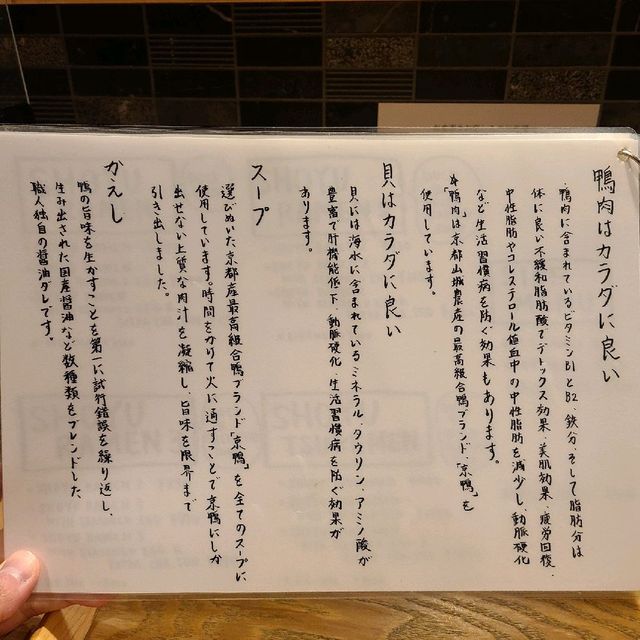 鴨肉はカラダに良い
鴨肉に含まれているビタミンB1とB2、鉄分、そして脂肪分は
体に良い不緩和脂肪酸でデトックス効果、美肌効果、疲労回復、
中性脂肪やコレステロール値血中の中性脂肪を減少し、動脈硬化
など生活習慣病を防ぐ効果もあります。
*「鴨肉」は京都山城農産の最高級合鴨ブランド「京鴨」を
使用しています。
貝はカラダに良い
貝には海水に含まれているミネラル、タウリン、アミノ酸が
豊富で肝機能低下、動脈硬化、生活習慣病を防ぐ効果が
あります。
スープ
選びぬいた京都産最高級合鴨ブランド「京鴨」を全てのスープに
使用しています。時間をかけて火に通すことで京鴨にしか
出せない上質な肉汁を凝縮し、旨味を限界まで
引き出しました。
かえし
鴨の旨味を生かすことを第一に試行錯誤を繰り返し、
生み出された国産醤油など数種類をブレンドした、
職人独自の醤油ダレです。